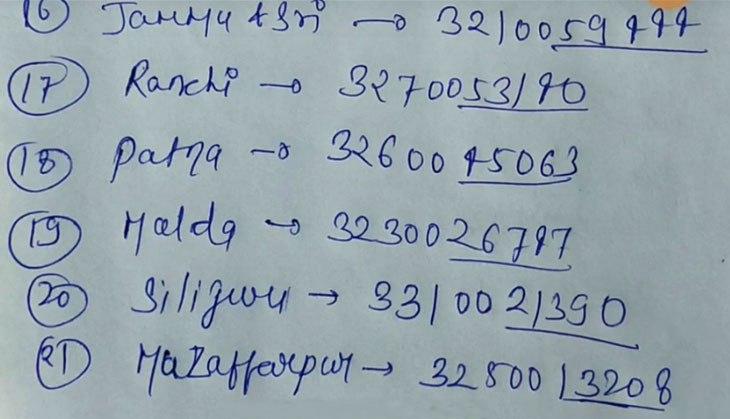 16 Jammu & Sri → 3210059444
17 Ranchi → 3270053140
18 Patna → 3260045063
19 Malda → 3230026747
20 Siliguri → 3310021390
21 Muzaffarpur → 3280013208